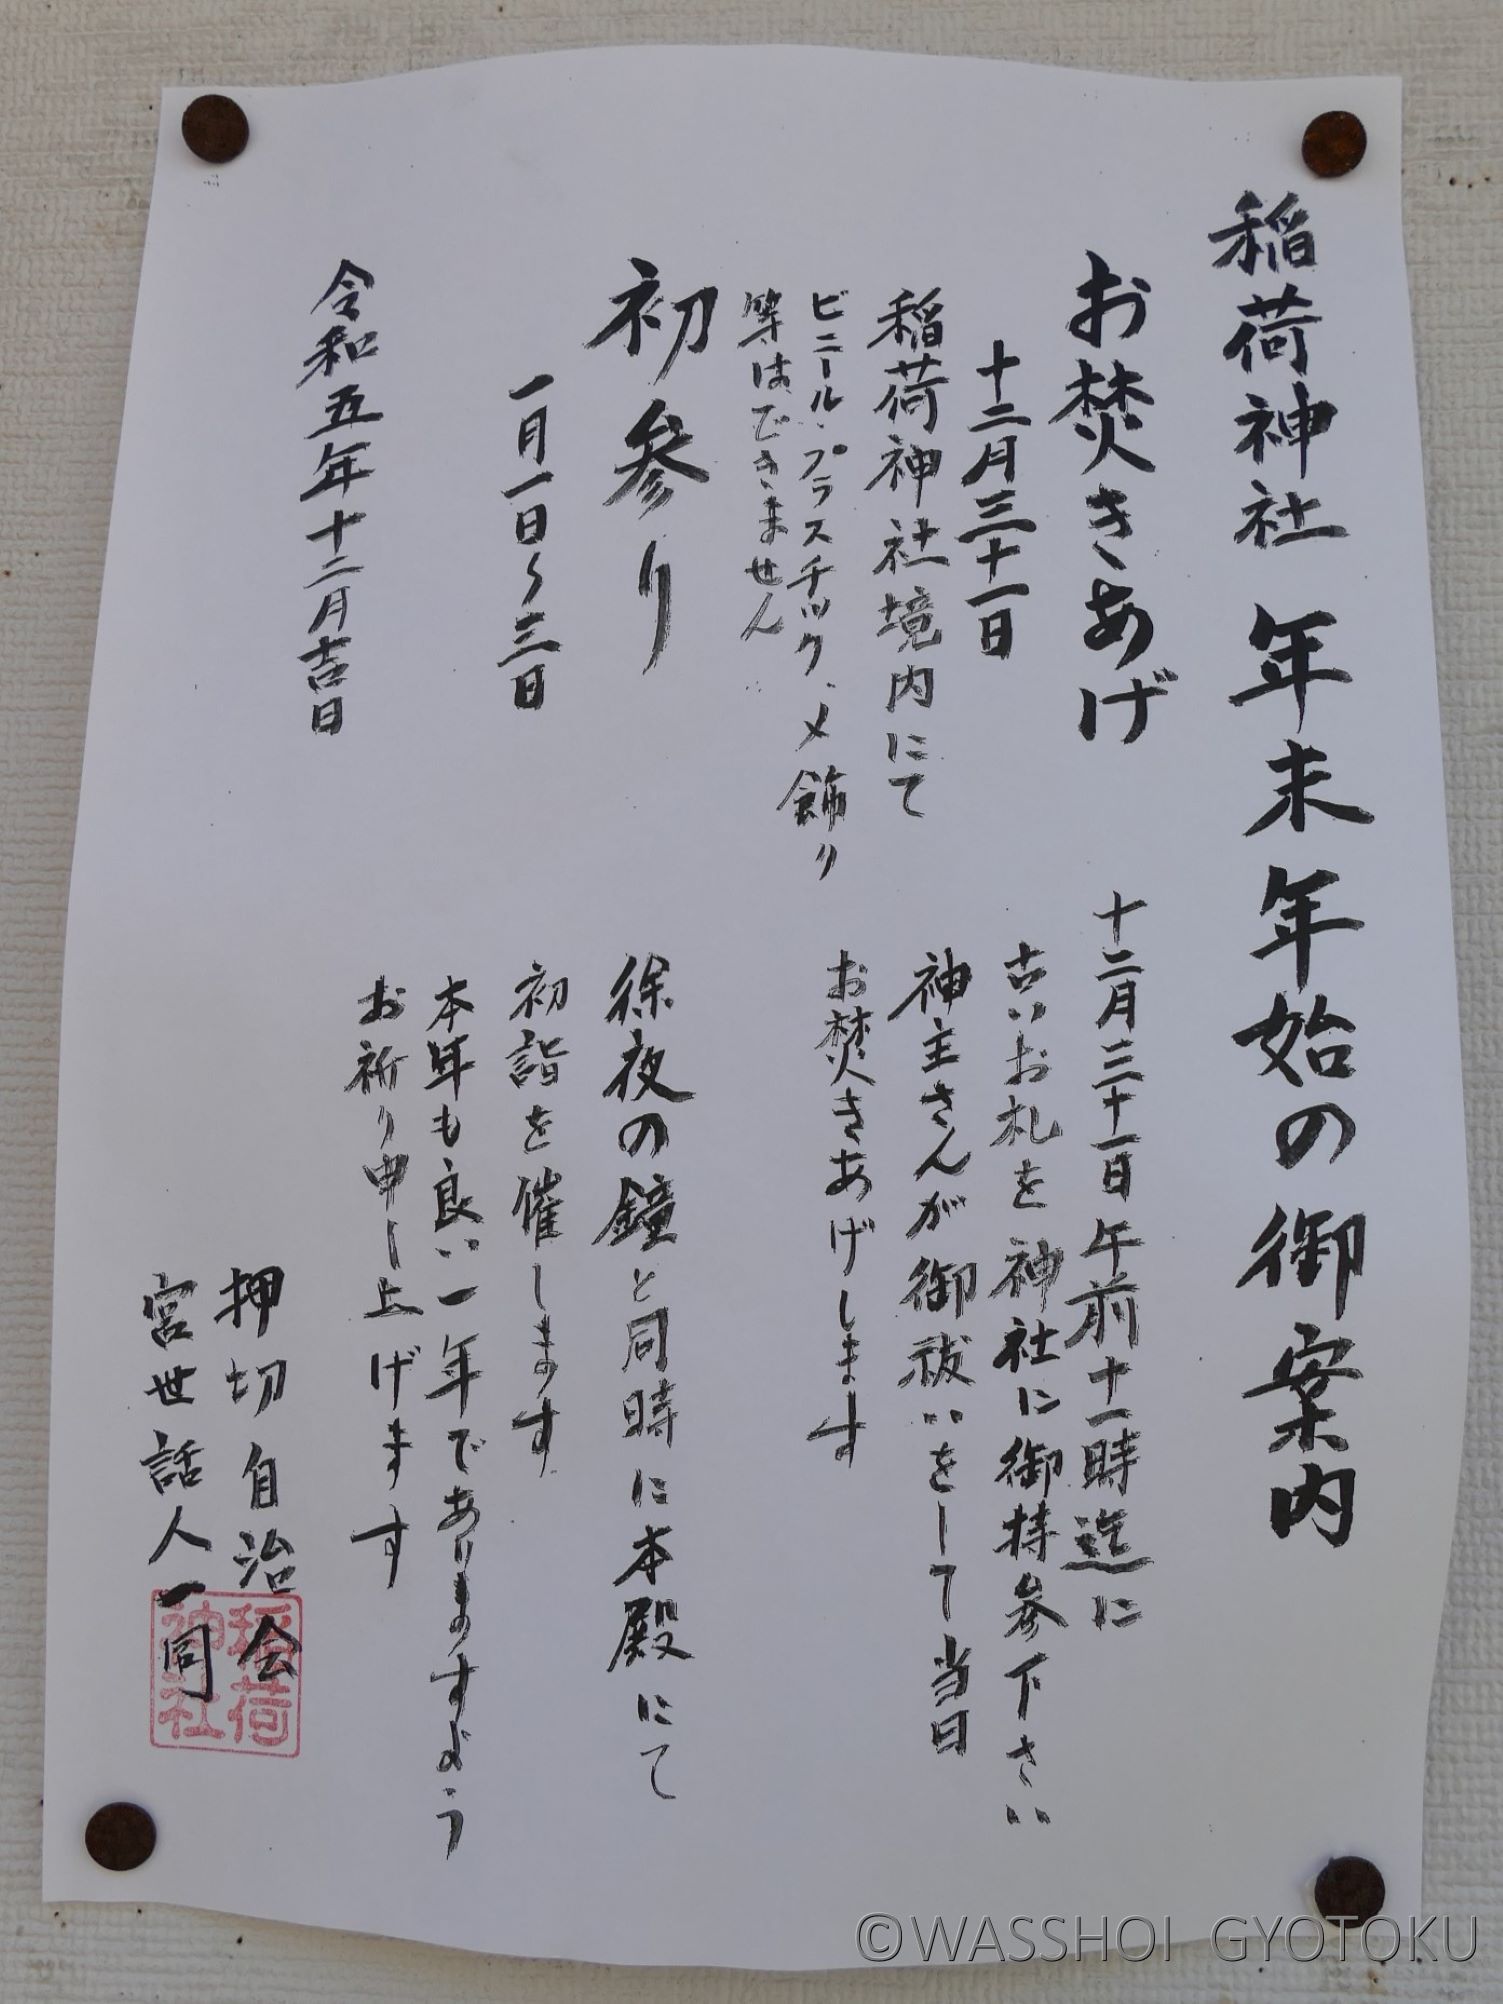 稲荷神社 年末年始の御案内
お焚きあげ
十二月三十一日
稲荷神社境内にて
ビニール、プラスチック、〆飾り
等はできません
十二月三十一日午前十一時迄に
古いお札を神社に御持参下さい
神主さんが御祓いをして当日
お焚きあげします
初参り
一月一日〜三日
徐夜の鐘と同時に本殿にて
初詣を催します
本年も良い一年でありますよう
お祈り申し上げます
令和五年十二月吉日
押切自治会
宮世話人一同
稲荷
神社
©WASSHOI GYOTOKU